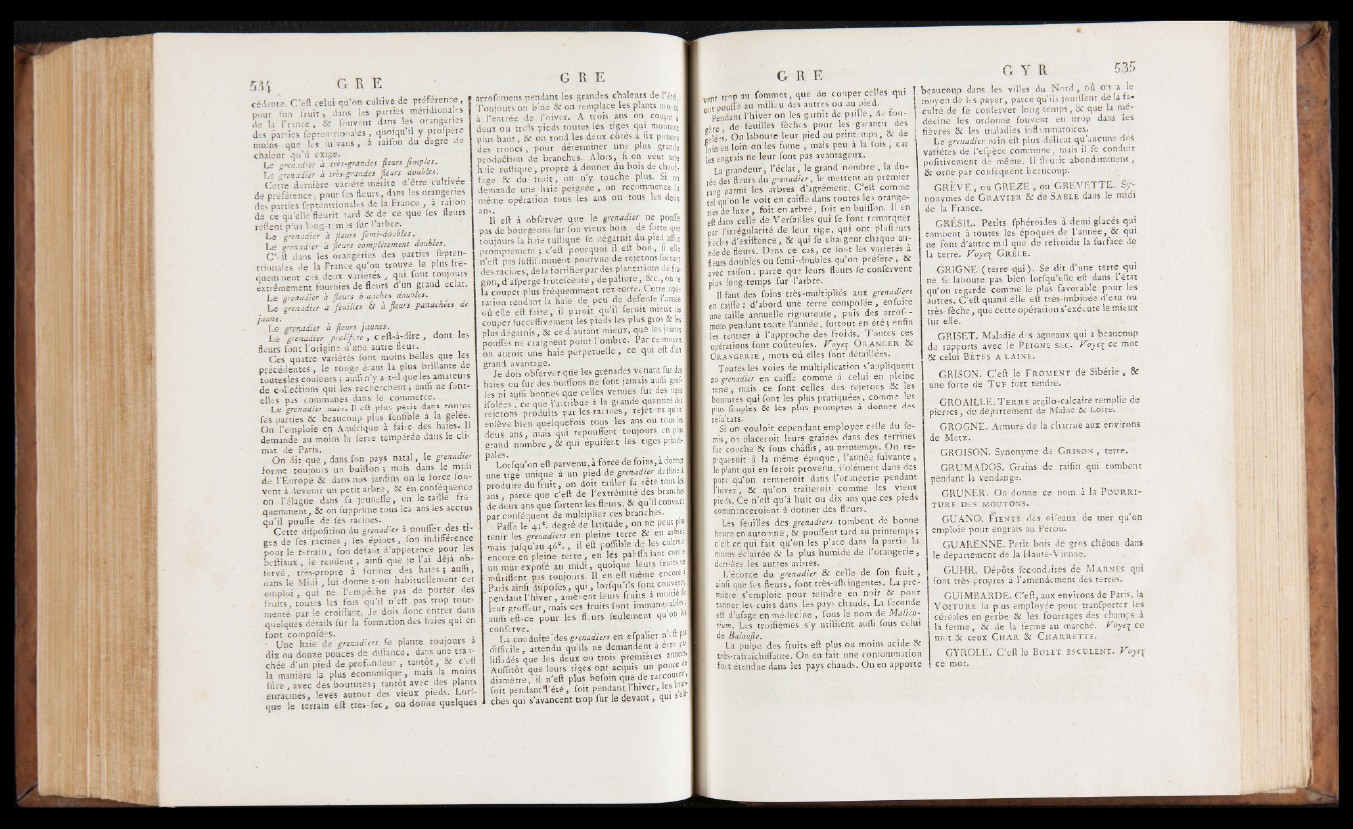 534
G R E
cédente. C'eſt celui qu'on cultive de préférence,
pour ſon fruit, dans les parties méridionales
de la France, & ſouvent dans les orangeries
des parties ſeptentrionales, quoiqu'il y proſpère
moins que les ſuivans, à raiſon du degré de
chaleur qu'il exige.
Le grenadier à très-grandes fleurs ſimples.
Le grenadier à très-grandes fleurs doubles.
Cette dernière variété mérite d'être cultivée
de préférence, pour ſes fleurs, dans les orangeries
des parties ſeptentrionales de la France, à raiſon
de ce qu'elle fleurit tard & de ce que ſes fleurs
reſtent plus long-temps ſur l'arbre.
Le grenadier à fleurs ſemi-doubles.
Le grenadier à fleurs complètement doubles.
C'eſt dans les orangeries des parties ſepten-
trionales de la France qu'on trouve le plus fré-
quemment ces deux variétés, qui ſont toujours
extrêmement fournies de fleurs d'un grand éclat.
Le grenadier à fleurs blanches doubles.
Le grenadier à feuilles & à fleurs panachées de
jaune.
Le grenadier à fleurs jaunes.
Le grenadier prolifère, c'eſt-à-dire, dont les
fleurs ſont l'origine d'une autre fleur.
Ces quatre variétés ſont moins belles que les
précédentes, le rouge étant la plus brillante de
toutes les couleurs; auſſi n'y a-t-il que les amateurs
de collections qui les recherchent; auſſi ne ſont-
elles pas communes dans le commerce.
Le grenadier nain. Il eſt plus petit dans toutes
ſes parties & beaucoup plus ſenſible à la gelée.
On l'emploie en Amérique à faire des haies. Il
demande au moins la ſerre tempérée dans le cli-
mat de Paris.
On dit que, dans ſon pays natal, le grenadier
forme toujours un buiſſon; mais dans le midi
de l'Europe & dans nos jardins on le force ſou-
vent à devenir un petit arbre, & en conſéquence
on l'élague dans ſa jeuneſſe, on le taille fré-
quemment, & on ſupprime tous les ans les accrus
qu'il pouſſe de ſes racines.
Cette diſpoſition du grenadier à pouſſer des ti-
ges de ſes racines, ſes épines, ſon indifférence
pour le terrain, ſon défaut d'appétence pour les
beſtiaux, le rendent, ainſi que je l'ai déjà ob-
ſervé, très-propre à former des haies; auſſi,
dans le Midi, lui donne-t-on habituellement cet
emploi, qui ne l'empêche pas de porter des
fruits, toutes les fois qu'il n'eſt pas trop tour-
menté par le croiſſant. Je dois donc entrer dans
quelques détails ſur la formation des haies qui en
ſont compoſées.
Une haie de grenadiers ſe plante toujours à
dix ou douze pouces de diſtance, dans une tran-
chée d'un pied de profondeur, tantôt, & c'eſt
la manière la plus économique, mais la moins
ſûre, avec des boutures; tantôt avec des plants
enracinés, levés autour des vieux pieds. Lorſ-
que le terrain eſt très-ſec, on donne quelques
G R E
arroſemens pendant les grandes chaleurs de l'été.
Toujours on bine & on remplace les plants morts
à l'entrée de l'hiver. A trois ans on coupe à
deux ou trois pieds toutes les tiges qui montent
plus haut, & on tond les deux côtés à ſix pouces
des troncs, pour déterminer une plus grande
production de branches. Alors, ſi on veut une
haie ruſtique, propre à donner du bois de chauf-
fage & du fruit, on n'y touche plus. Si on
demande une haie peignée, on recommence la
même opération tous les ans ou tous les deux
ans.
Il eſt à obſerver que le grenadier ne pouſſe
pas de bourgeons ſur ſon vieux bois, de ſorte que
toujours la haie ruſtique ſe dégarnit du pied aſſez
promptement; c'eſt pourquoi il eſt bon, ſi elle
n'eſt pas ſuffiſamment pourvue de rejetons ſortant
des racines, de la fortifier par des plantations de fra-
gon, d'aſperge fruteſcente, de paliure, &c., ou de
la couper plus fréquemment rez-terre. Cette opé-
ration rendant la haie de peu de défenſe l'année
où elle eſt faite, il paroît qu'il ſeroit mieux de
couper ſucceſſivement les pieds les plus gros & les
plus dégarnis, & ce d'autant mieux, que les jeunes
pouſſes ne craignent point l'ombre. Par ce moyen
on auroit une haie perpétuelle, ce qui eſt d'un
grand avantage.
Je dois obſerver que les grenades venant ſur des
haies ou ſur des buiſſons ne ſont jamais auſſi groſ-
ſes ni auſſi bonnes que celles venues ſur des tiges
iſolées, ce que j'attribue à la grande quantité de
rejetons produits par les racines, rejetons qu'on
enlève bien quelquefois tous les ans ou tous les
deux ans, mais qui repouſſent toujours en plus
grand nombre, & qui épuiſent les tiges princi-
pales.
Lorſqu'on eſt parvenu, à force de ſoins, à donner
une tige unique à un pied de grenadier deſtiné à
produire du fruit, on doit tailler ſa tête tous les
ans, parce que c'eſt de l'extrémité des branches
de deux ans que ſortent les fleurs, & qu'il convient
par conſéquent de multiplier ces branches.
Paſſé le 41e. degré de latitude, on ne peut plus
tenir les grenadiers en pleine terre & en arbre;
mais juſqu'au 46e., il eſt poſſible de les cultiver
encore en pleine terre, en les paliſſadant contre
un mur expoſé au midi, quoique leurs fruits ne
mûriſſent pas toujours. Il en eſt même encore à
Paris ainſi diſpoſés, qui, lorſqu'ils ſont couverts
pendant l'hiver, amènent leurs fruits à moitié de
leur groſſeur, mais ces fruits ſont immangeables;
auſſi eſt-ce pour les fleurs ſeulement qu'on les
conſerve.
La conduite des grenadiers en eſpalier n'eſt pas
difficile, attendu qu'ils ne demandent à être pa-
liſſadés que les deux ou trois premières années.
Auſſitôt que leurs tiges ont acquis un pouce de
diamètre, il n'eſt plus beſoin que de raccourcir,
ſoit pendant l'été, ſoit pendant l'hiver, les bran-
ches qui s'avancent trop ſur le devant, qui s'élè-
G R E
vent trop au ſommet, que de couper celles qui
ont pouſſé au milieu des autres ou au pied.
Pendant l'hiver on les garnit de paille, de fou-
gère, de feuilles ſèches pour les garantir des
gelées. On laboure leur pied au printemps, & de
loin en loin on les fume, mais peu à la fois, car
les engrais ne leur ſont pas avantageux.
La grandeur, l'éclat, le grand nombre, la du-
rée des fleurs du grenadier, le mettent au premier
rang parmi les arbres d'agrément. C'eſt comme
tel qu'on le voit en caiſſe dans toutes les orange-
ries de luxe, ſoit en arbre, ſoit en buiſſon. Il en
eſt dans celle de Verſailles qui ſe font remarquer
par l'irrégularité de leur tige, qui ont pluſieurs
ſiècles d'exiſtence, & qui ſe chargent chaque an-
née de fleurs. Dans ce cas, ce ſont les variétés à
fleurs doubles ou ſemi-doubles qu'on préfère, &
avec raiſon, parce que leurs fleurs ſe conſervent
plus long-temps ſur l'arbre.
Il faut des ſoins très-multipliés aux grenadiers
en caiſſe: d'abord une terre compoſée, enſuite
une taille annuelle rigoureuſe, puis des arroſe-
mens pendant toute l'année, ſurtout en été; enfin
les rentrer à l'approche des froids. Toutes ces
opérations ſont coûteuſes. Voyez ORANGER &
ORANGERIE, mots où elles ſont détaillées.
Toutes les voies de multiplication s'appliquent
au grenadier en caiſſe comme à celui en pleine
terre, mais ce ſont celles des rejetons & les
boutures qui ſont les plus pratiquées, comme les
plus ſimples & les plus promptes à donner des
réſultats.
Si on vouloit cependant employer celle du ſe-
mis, on placeroit leurs graines dans des terrines
ſur couche & ſous châſſis, au printemps. On re-
piqueroit à la même époque, l'année ſuivante,
le plant qui en ſeroit provenu, iſolément dans des
pots qu'on rentreroit dans l'orangerie pendant
l'hiver, & qu'on traiteroit comme les vieux
pieds. Ce n'eſt qu'à huit ou dix ans que ces pieds
commenceroient à donner des fleurs.
Les feuilles des grenadiers tombent de bonne
heure en automne, & pouſſent tard au printemps;
c'eſt ce qui fait qu'on les place dans la partie la
moins éclairée & la plus humide de l'orangerie,
derrière les autres arbres.
L'écorce du grenadier & celle de ſon fruit,
ainſi que ſes fleurs, ſont très-aſtringentes. La pre-
mière s'emploie pour teindre en noir & pour
tanner les cuirs dans les pays chauds. La ſeconde
eſt d'uſage en médecine, ſous le nom de Malico-
rium. Les troiſièmes s'y utiliſent auſſi ſous celui
de Balauſte.
La pulpe des fruits eſt plus ou moins acide &
très-rafraîchiſſante. On en fait une conſommation
fort étendue dans les pays chauds. On en apporte
G Y R
535
beaucoup dans les villes du Nord, où on a le
moyen de les payer, parce qu'ils jouiſſent de la fa-
culté de ſe conſerver long-temps, & que la mé-
decine les ordonne ſouvent en ſirop dans les
fièvres & les maladies inflammatoires.
Le grenadier nain eſt plus délicat qu'aucune des
variétés de l'eſpèce commune, mais il ſe conduit
poſitivement de même. Il fleurit abondamment,
& orne par conſéquent beaucoup.
GRÈVE, ou GREZE, ou GREVETTE. Sy-
nonymes de GRAVIER & de SABLE dans le midi
de la France.
GRÉSIL. Petits ſphéroïdes à demi glacés qui
tombent à toutes les époques de l'année, & qui
ne font d'autre mal que de refroidir la ſurface de
la terre. Voyez GRÊLE.
GRIGNE (terre qui). Se dit d'une terre qui
ne ſe laboure pas bien lorſqu'elle eſt dans l'état
qu'on regarde comme le plus favorable pour les
autres. C'eſt quand elle eſt très-imbibée d'eau ou
très-ſèche, que cette opération s'exécute le mieux
ſur elle.
GRISET. Maladie des agneaux qui a beaucoup
de rapports avec le PEIGNE SEC. Voyez ce mot
& celui BÊTES A LAINE.
GRISON. C'eſt le FROMENT de Sibérie, &
une ſorte de TUF fort tendre.
GROAILLE. TERRE argilo-calcaire remplie de
pierres, du département de Maine & Loire.
GROGNE. Armure de la charrue aux environs
de Metz.
GROISON. Synonyme de GRISON, terre.
GRUMADOS. Grains de raiſin qui tombent
pendant la vendange.
GRUNER. On donne ce nom à la POURRI-
TURE DES MOUTONS.
GUANO. FIENTE des oiſeaux de mer qu'on
emploie pour engrais au Pérou.
GUARENNE. Petit bois de gros chênes dans
le département de la Haute-Vienne.
GUHR. Dépôts fecondites de MARNES qui
ſont très-propres à l'amendement des terres.
GUIMBARDE. C'eſt, aux environs de Paris, la
VOITURE la plus employée pour tranſporter les
céréales en gerbe & les fourrages des champs à
la ferme, & de la ferme au marché. Voyez ce
mot & ceux CHAR & CHARRETTE.
GYROLE. C'eſt le BOLET ESCULENT. Voyez
ce mot.